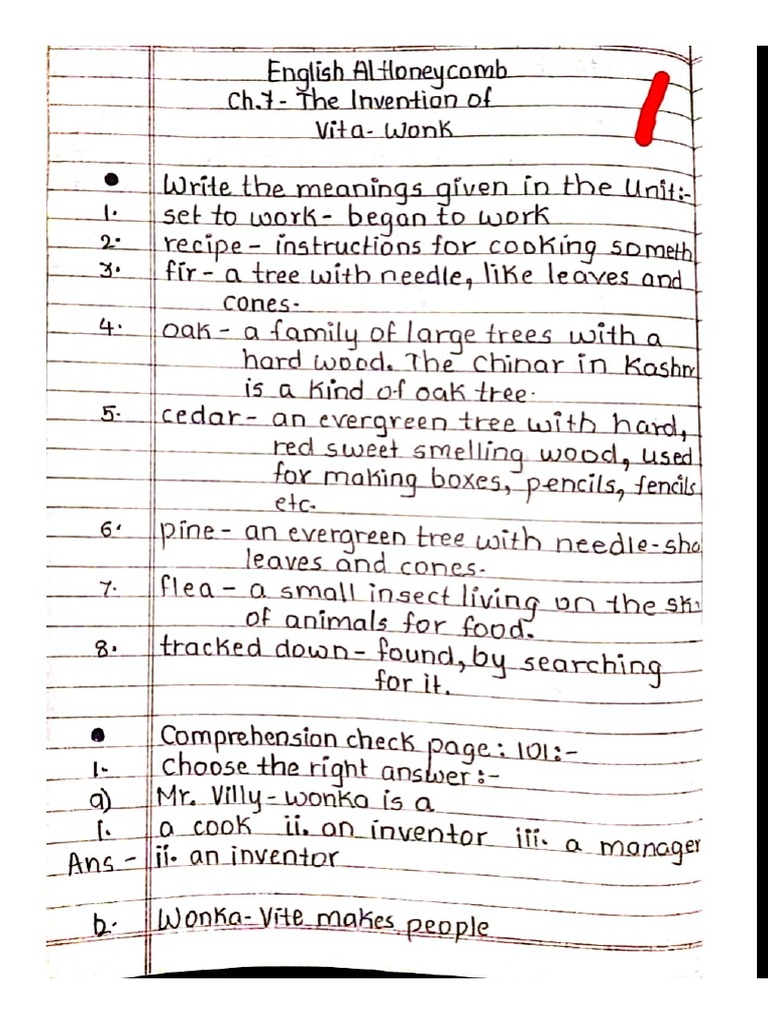 English A1 Honeycomb
Ch.7- The Invention of
Vita- Wonk
• Write the meanings given in the Unit:-
1. set to work- began to work
2. recipe - instructions for cooking someth
3. fir - a tree with needle, like leaves and
cones.
4. oak - a family of large trees with a
hard wood. The chinar in Kashm
is a kind of oak tree.
5. cedar- an evergreen tree with hard,
red sweet smelling wood, used
for making boxes, pencils, fencils
etc.
6. pine- an evergreen tree with needle-sha
leaves and cones.
7. flea - a small insect living on the sk
of animals for food.
8. tracked down- found, by searching
for it.
• Comprehension check page: 101:-
1. Choose the right answer:-
a) Mr. Villy-wonka is a
i. a cook ii. an inventor iii. a manager
Ans - ii. an inventor
b. Wonka-Vite makes people